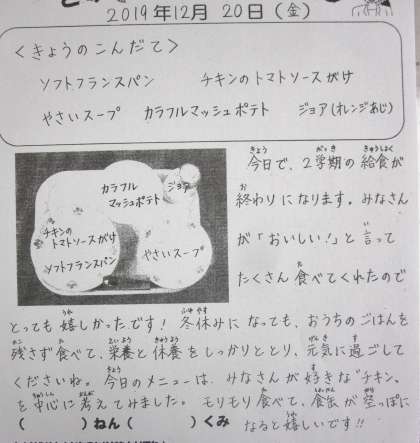 2019年12月20日(金)
<きょうのこんだて>
ソフトフランスパン チキンのトマトソースがけ
やさいスープ カラフルマッシュポテト ジョア(オレンジあじ)
カラフル
マッシュポテト
ジョア
チキンの
トマトソースがけ
やさいスープ
ソフトフランスパン
今日で、2学期の給食が
終わりになります。みなさん
が「おいしい!」と言って
たくさん食べてくれたので
とっても嬉しかったです!冬休みになっても、おうちのごはんを
残さず食べて、栄養と休養をしっかりととり、元気に過ごして
くださいね。今日のメニューは、みなさんが好きな"チキン"
を中心に考えてみました。モリモリ食べて、食缶が空っぽに
( )ねん( )くみ なると嬉しいです!!